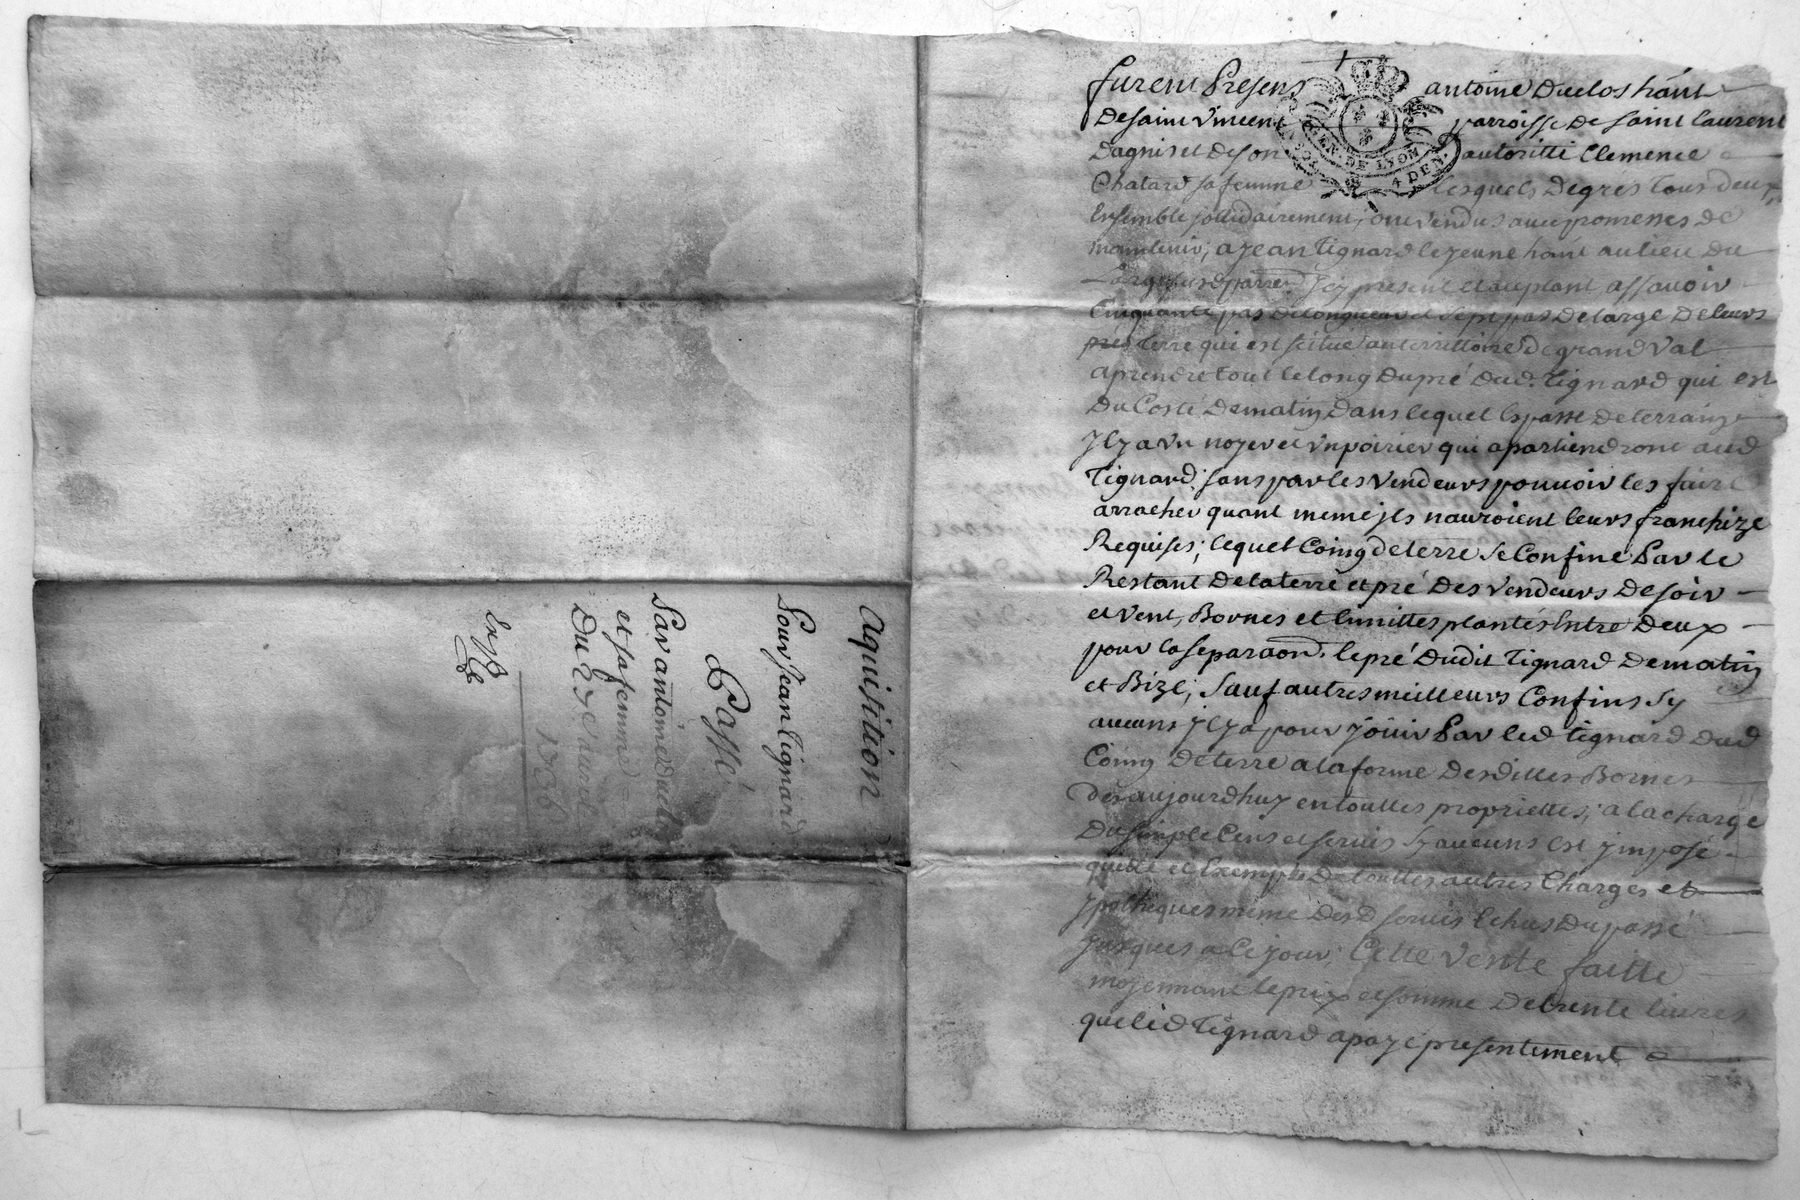 furent Presens antoine Duclos hānt
De saint Vincent parroisse De saint laurent
Dagnis et De son autoritté Clemence
Chatard sa femme lesquels De grés tous deux
Ensemble sollidairement, ont vendus avec promesses de
maintenir, a jean Tignard le jeune hānt au lieu du
present et aceptant, assavoir
Cinquante pas de longueur et sept pas De large De leurs
terre qui est scitué au territtoire de grand Val
aprendre tout le long du pré dud. Tignard qui est
Du Costé De matin Dans lequel Espasse de terrain
Il y a vn noyer et vn poirier qui apartiendront aud
Tignard, sans par les vendeurs pouuoir les faire
arracher quant meme jls nauroient leurs franchize
Requises; lequel Coing de terre se Confine Par le
Restant De la terre et pré Des vendeurs De soir
et vent, Bornes et limittes plantés Entre Deux
pour la separāon. le pré Dudit Tignard De matin
et Bize; sauf autres meilleurs Confins sy
aucuns jl y a pour joüir Par led Tignard dud
Coing De terre a la forme Desdittes Bornes
des aujourdhuy en touttes propriettes; a la charge
Du simple Cens et seruis sy aucuns est jmposé
quitte et Exempte De touttes autres Charges et
ypotheques meme Desd seruis Echus Du passé
jusques a Ce jour; Cette vente faitte
moyennant le prix et somme De trente liures
que led Tignard a payé presentement
Aquisition
Pour Jean Tignard
Passé
Par antoine Duclos
et sa femme
Du 27e auril
1756
Exp